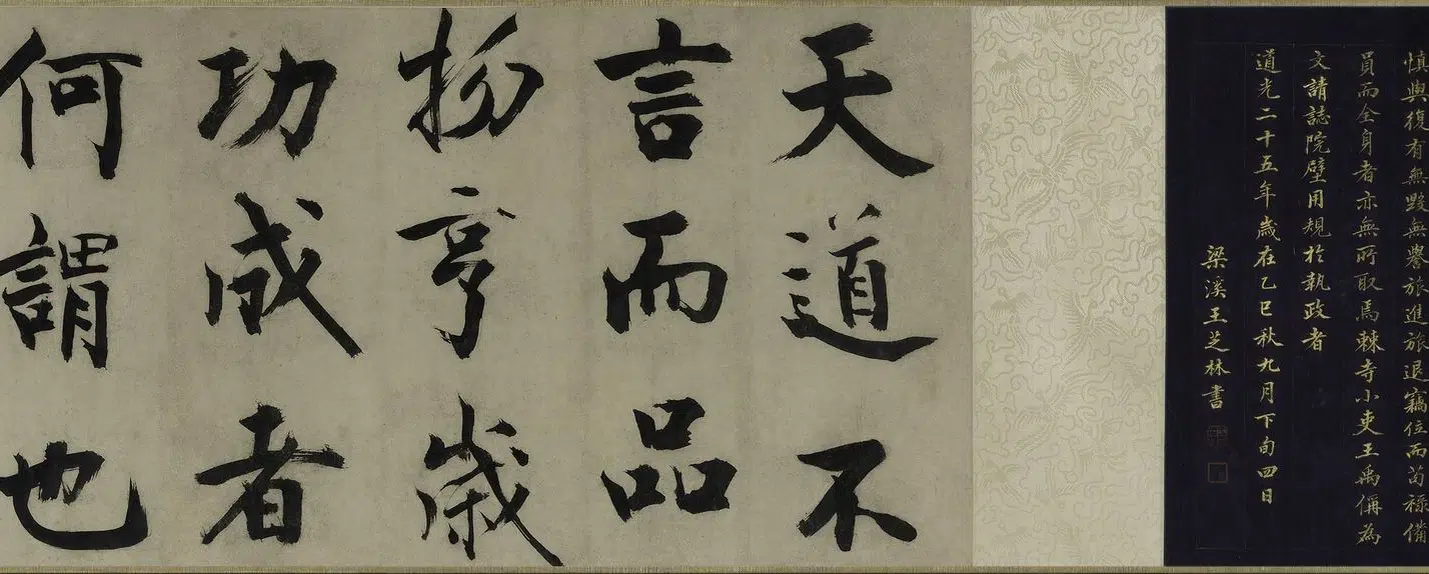 慎與復有無毀無譽旅進旅退竊位而苟祿備
員而全身者亦無所取焉棘寺小吏王禹偁為
文請誌院壁用規於執政者
道光二十五年歲在乙巳秋九月下旬四日
梁溪王芝林書
天道不
言而品
物亨歲
功成者
何謂也